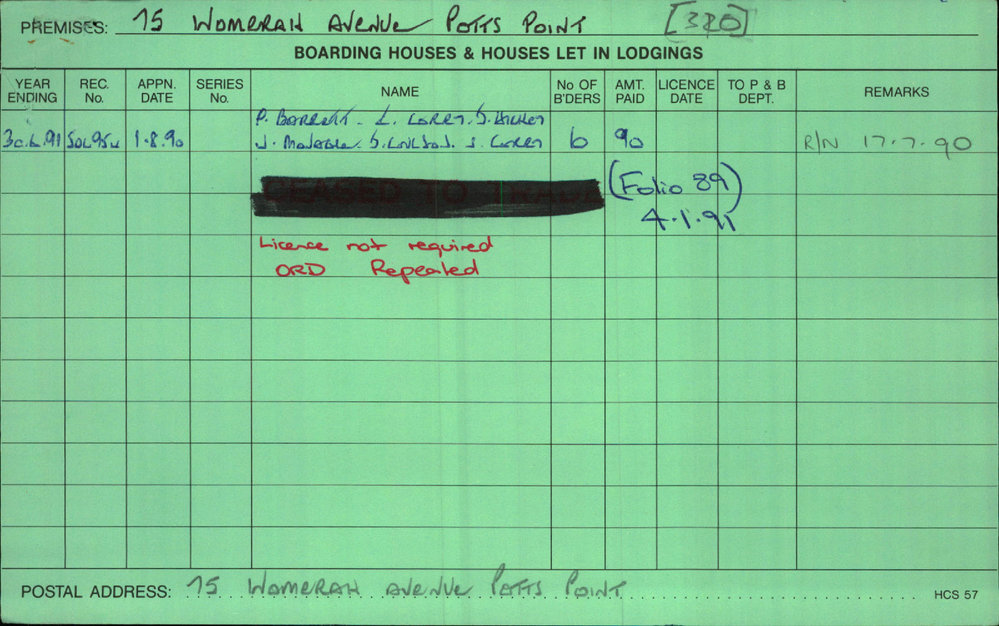 PREMISES: 75 WOMERAH AVENUE POTTS POINT [320]
BOARDING HOUSES & HOUSES LET IN LODGINGS
YEAR ENDING REC. No. APPN. DATE SERIES No. NAME No OF B'DERS AMT. PAID LICENCE DATE TO P & B DEPT. REMARKS
P. BARRETT. L. CORRY. S.
30.6.91 1.8.90 J. S. S. CORRY 6 90 R/N 17.7.90
(Folio 89)
4.1.91
Licence not required
ORD Repealed
POSTAL ADDRESS: 75 WOMERAH AVENUE POTTS POINT HCS 57